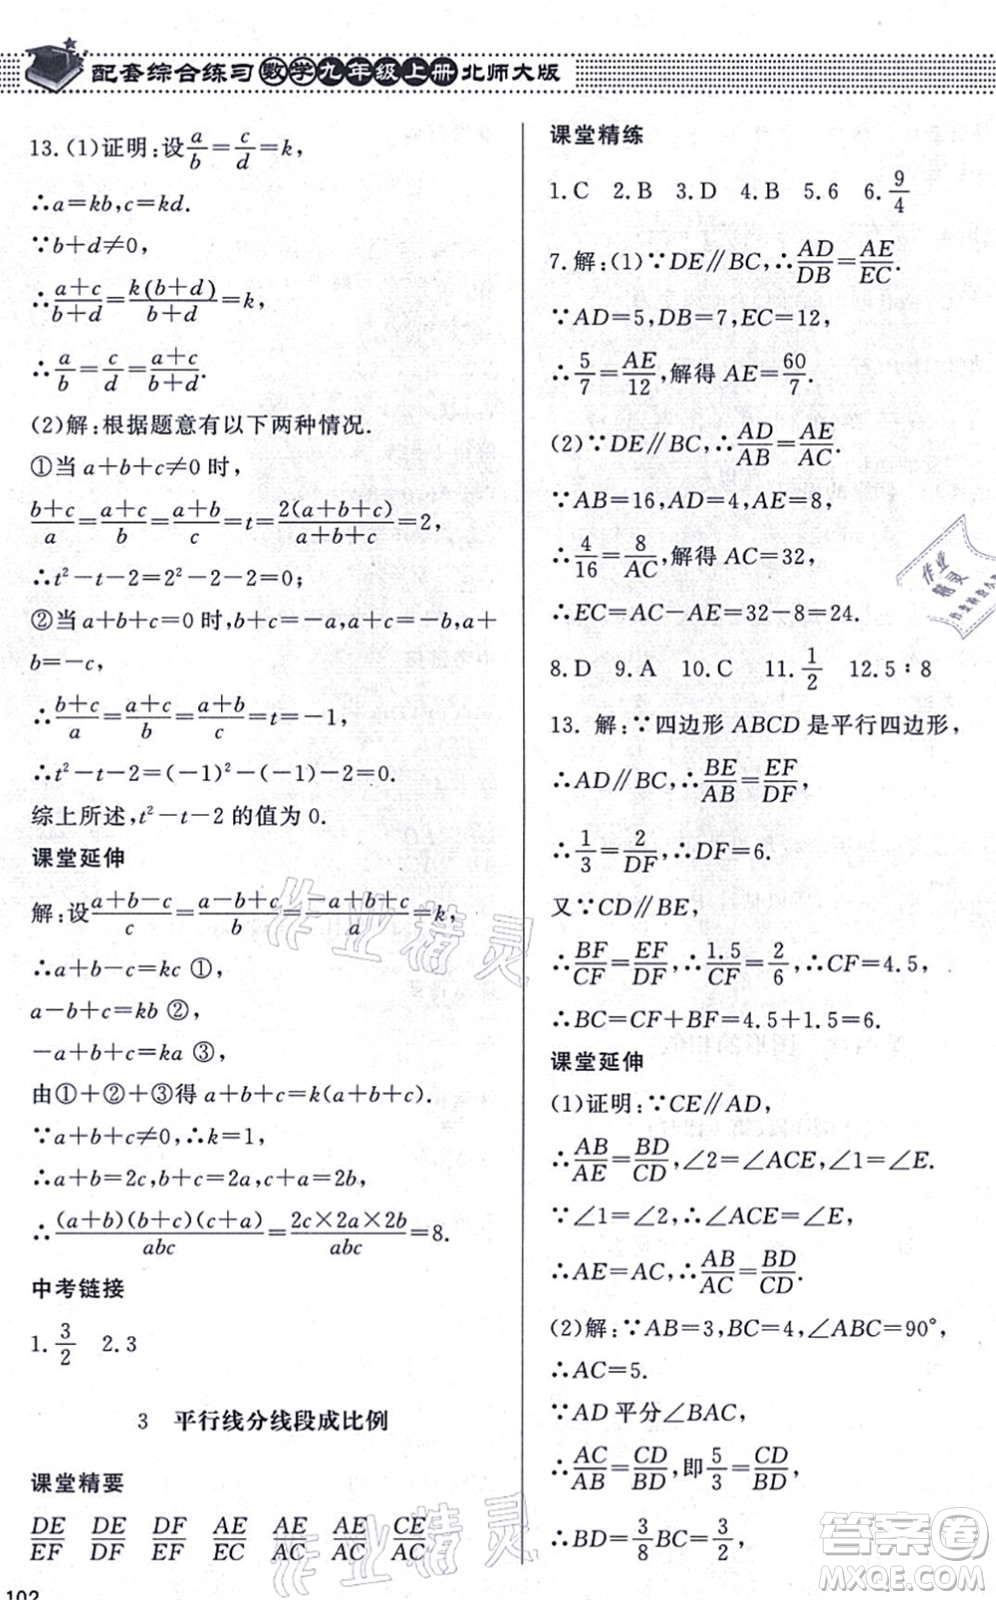 配套综合练习 数学九年级上册 北师大版
13.(1)证明:设a/b=c/d=k,
∴a=kb,c=kd.
∵b+d≠0,
∴(a+c)/(b+d)=k(b+d)/(b+d)=k,
∴a/b=c/d=(a+c)/(b+d).
(2)解:根据题意有以下两种情况.
①当a+b+c≠0时,
(b+c)/a=(a+c)/b=(a+b)/c=t=2(a+b+c)/(a+b+c)=2,
∴t²-t-2=2²-2-2=0;
②当a+b+c=0时,b+c=-a,a+c=-b,a+
b=-c,
∴(b+c)/a=(a+c)/b=(a+b)/c=t=-1,
∴t²-t-2=(-1)²-(-1)-2=0.
综上所述,t²-t-2的值为0.
课堂延伸
解:设(a+b-c)/c=(a-b+c)/b=(-a+b+c)/a=k,
∴a+b-c=kc ①,
a-b+c=kb ②,
-a+b+c=ka ③,
由①+②+③得a+b+c=k(a+b+c).
∵a+b+c≠0,∴k=1,
∴a+b=2c,b+c=2a,a+c=2b,
∴(a+b)(b+c)(c+a)/abc=2c×2a×2b/abc=8.
中考链接
1.3/2 2.3
3 平行线分线段成比例
课堂精要
DE/EF DE/DF DF/EF AE/EC AE/AC AE/AC CE/AC
102
课堂精练
1.C 2.B 3.D 4.B 5.6 6.9/4
7.解:(1)∵DE∥BC,∴AD/DB=AE/EC.
∵AD=5,DB=7,EC=12,
∴5/7=AE/12,解得AE=60/7.
(2)∵DE∥BC,∴AD/AB=AE/AC.
∵AB=16,AD=4,AE=8,
∴4/16=8/AC,解得AC=32,
∴EC=AC-AE=32-8=24.
8.D 9.A 10.C 11.1/2 12.5∶8
13.解:∵四边形ABCD是平行四边形,
∴AD∥BC,∴BE/AB=EF/DF,
∴1/3=2/DF,∴DF=6.
又∵CD∥BE,
∴BF/CF=EF/DF,∴1.5/CF=2/6,∴CF=4.5,
∴BC=CF+BF=4.5+1.5=6.
课堂延伸
(1)证明:∵CE∥AD,
∴AB/AE=BD/CD,∠2=∠ACE,∠1=∠E.
∵∠1=∠2,∴∠ACE=∠E,
∴AE=AC,∴AB/AC=BD/CD.
(2)解:∵AB=3,BC=4,∠ABC=90°,
∴AC=5.
∵AD平分∠BAC,
∴AC/AB=CD/BD,即5/3=CD/BD,
∴BD=3/8BC=3/2,
作业精灵
作业精灵
作业精灵
答案圈
MXQE.COM